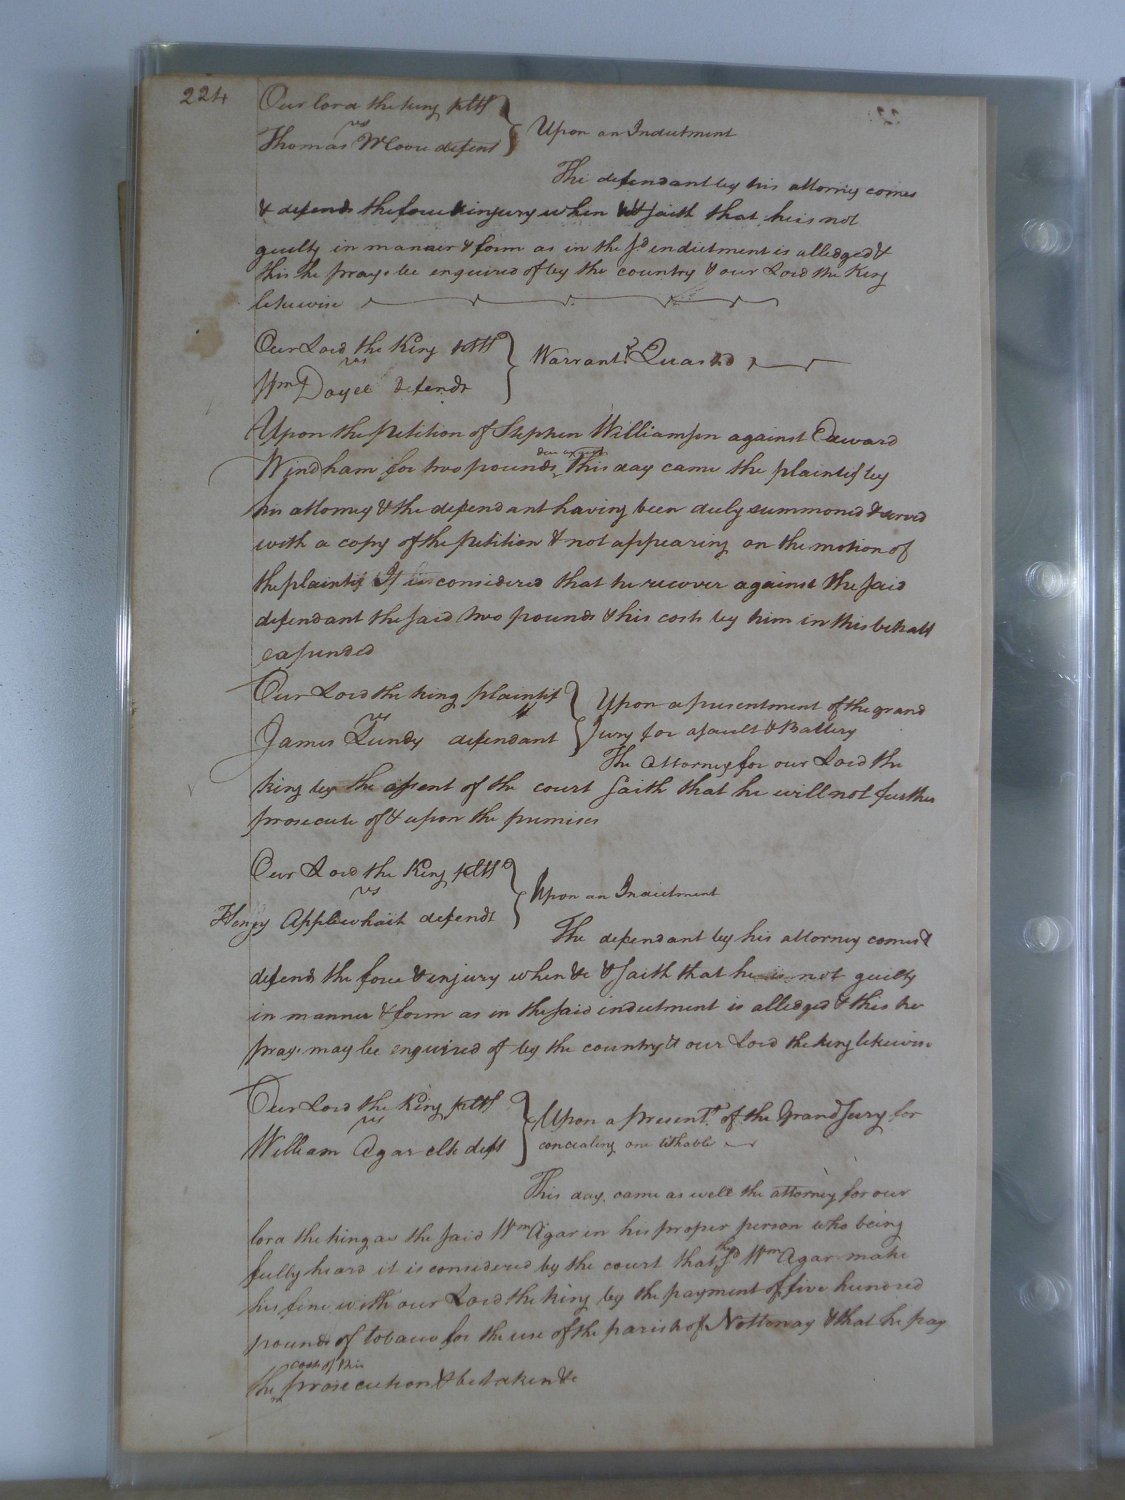 224
Our lord the king pltff
vs
Thomas McCoove defent
Upon an Indictment
The defendant by his attorney comes
& defends the force & injury when &c & saith that he is not
guilty in manner & form as in the sd indictment is alledged &
this he prays be enquired of by the country & our Lord the King
likewise
Our Lord the King pltff
vs
Wm Doyel defendt
Warrant Quashd
Upon the petition of Stephen Williamson against Edward
Windham for two pounds This day came the plaintif by
his attorney & the defendant having been duly summoned & served
with a copy of the petition & not appearing on the motion of
the plaintif It is considered that he recover against the said
defendant the said two pounds & his costs by him in this behalf
expended
Our Lord the king plaintif
vs
James Lundy defendant
Upon a presentment of the grand
Jury for assault & Battery
The Attorney for our Lord the
king by the assent of the court saith that he will not further
prosecute of & upon the premises
Our Lord the King pltff
vs
Henry Applewhait defendt
Upon an Indictment
The defendant by his attorney comes &
defends the force & injury when &c & saith that he is not guilty
in manner & form as in the said indictment is alledged & this he
prays may be enquired of by the country & our Lord the king likewise
Our Lord the King pltff
vs
William Agar clk deft
Upon a presentt of the Grand Jury for
concealing one tithable
This day came as well the attorney for our
lord the king as the said Wm Agar in his proper person who being
fully heard it is considered by the court that the sd Wm Agar make
his fine with our Lord the king by the payment of five hundred
pounds of tobacco for the use of the parish of Nottoway & that he pay
costs of this
the prosecution & be taken &c